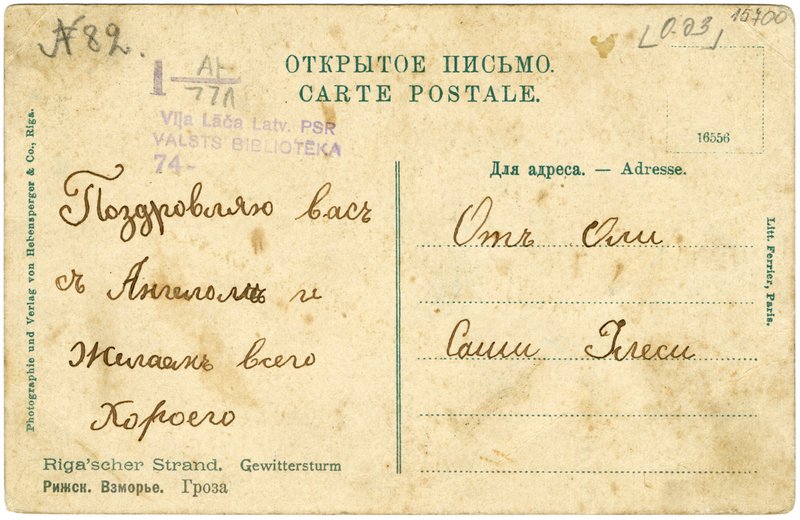 № 82.
[0-93]
15700
ОТКРЫТОЕ ПИСЬМО.
CARTE POSTALE.
16556
Viļa Lāča Latv. PSR
VALSTS BIBLIOTĒKA
74-
Для адреса. — Adresse.
Поздровляю васъ
съ Ангеломъ и
Желаемъ всего
Хороего
Отъ Оли
Саши
Riga'scher Strand. Gewittersturm
Рижск. Взморье. Гроза
Photographie und Verlag von Hebensperger & Co., Riga.
Litt. Ferrier, Paris.